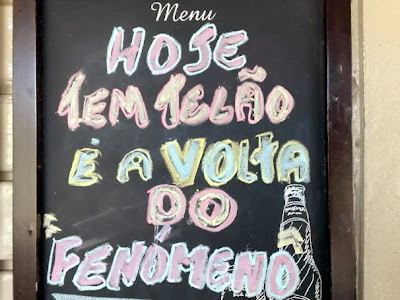 Menu
HOJE
TEM TELÃO
É A VOLTA
DO
FENÓMENO